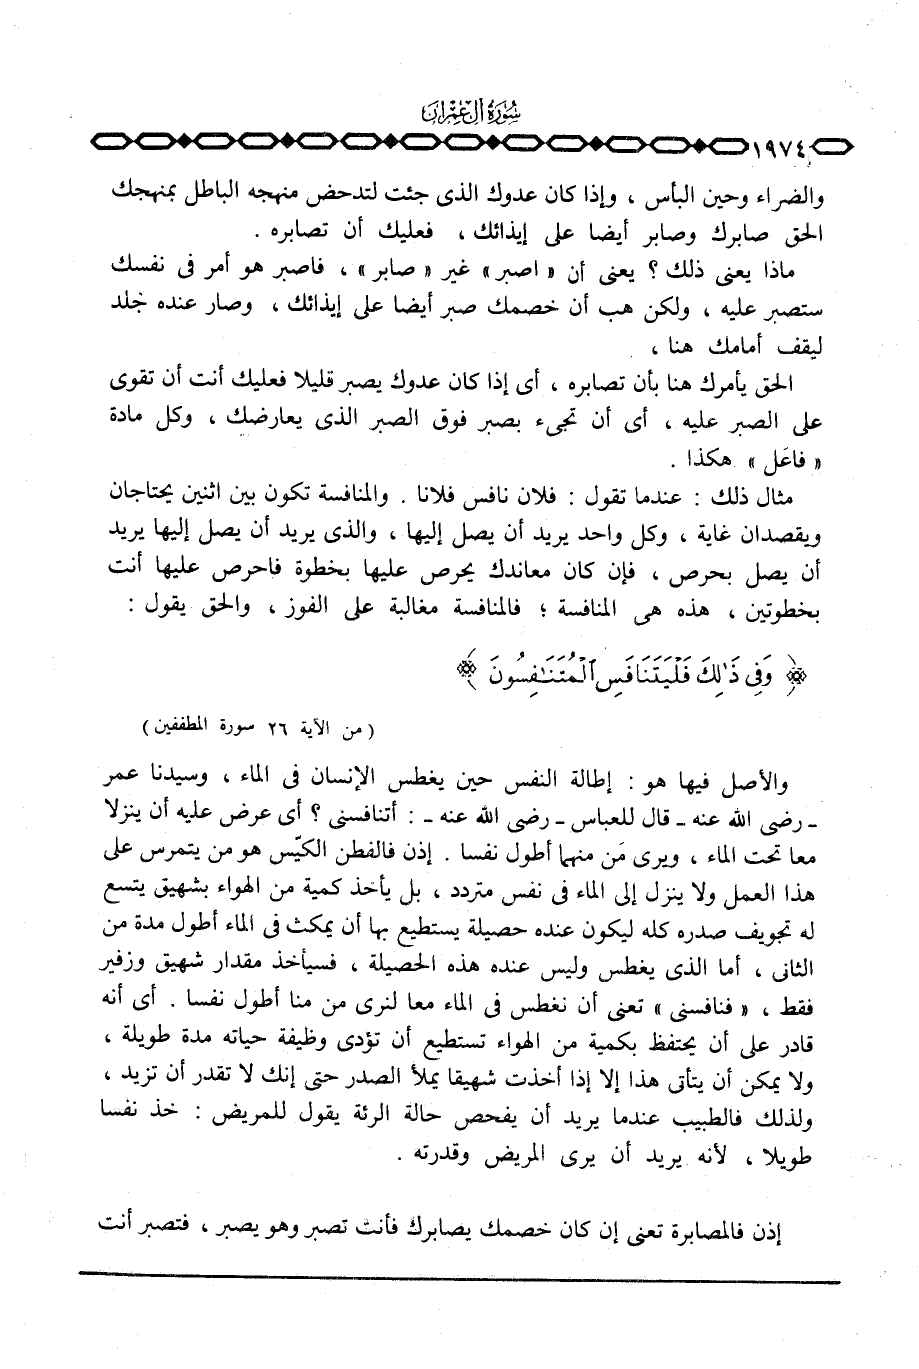 سُورَةُ آلِ عِمْرَان
١٩٧٤
والضراء وحين البأس ، وإذا كان عدوك الذى جئت لتدحض منهجه الباطل بمنهجك
الحق صابرك وصابر أيضا على إيذائك ، فعليك أن تصابره .
ماذا يعنى ذلك ؟ يعنى أن « اصبر » غير « صابر » ، فاصبر هو أمر فى نفسك
ستصبر عليه ، ولكن هب أن خصمك صبر أيضا على إيذائك ، وصار عنده جَلد
ليقف أمامك هنا ،
الحق يأمرك هنا بأن تصابره ، أى إذا كان عدوك يصبر قليلا فعليك أنت أن تقوى
على الصبر عليه ، أى أن تجىء بصبر فوق الصبر الذى يعارضك ، وكل مادة
« فاعَل » هكذا .
مثال ذلك : عندما تقول : فلان نافس فلانا . والمنافسة تكون بين اثنين يحتاجان
ويقصدان غاية ، وكل واحد يريد أن يصل إليها ، والذى يريد أن يصل إليها يريد
أن يصل بحرص ، فإن كان معاندك يحرص عليها بخطوة فاحرص عليها أنت
بخطوتين ، هذه هى المنافسة ؛ فالمنافسة مغالبة على الفوز ، والحق يقول :
﴿ وَفِى ذَٰلِكَ فَلْيَتَنَافَسِ ٱلْمُتَنَٰفِسُونَ ﴾
( من الآية ٢٦ سورة المطففين )
والأصل فيها هو : إطالة النفس حين يغطس الإنسان فى الماء ، وسيدنا عمر
ـ رضى الله عنه ـ قال للعباس ـ رضى الله عنه ـ : أتنافسنى ؟ أى عرض عليه أن ينزلا
معا تحت الماء ، ويرى مَن منهما أطول نفسا . إذن فالفطن الكيّس هو من يتمرس على
هذا العمل ولا ينزل إلى الماء فى نفس متردد ، بل يأخذ كمية من الهواء بشهيق يتسع
له تجويف صدره كله ليكون عنده حصيلة يستطيع بها أن يمكث فى الماء أطول مدة من
الثانى ، أما الذى يغطس وليس عنده هذه الحصيلة ، فسيأخذ مقدار شهيق وزفير
فقط ، « فنافسنى » تعنى أن نغطس فى الماء معا لنرى من منا أطول نفسا . أى أنه
قادر على أن يحتفظ بكمية من الهواء تستطيع أن تؤدى وظيفة حياته مدة طويلة ،
ولا يمكن أن يتأتى هذا إلا إذا أخذت شهيقا يملأ الصدر حتى إنك لا تقدر أن تزيد ،
ولذلك فالطبيب عندما يريد أن يفحص حالة الرئة يقول للمريض : خذ نفسا
طويلا ، لأنه يريد أن يرى المريض وقدرته .
إذن فالمصابرة تعنى إن كان خصمك يصابرك فأنت تصبر وهو يصبر ، فتصبر أنت